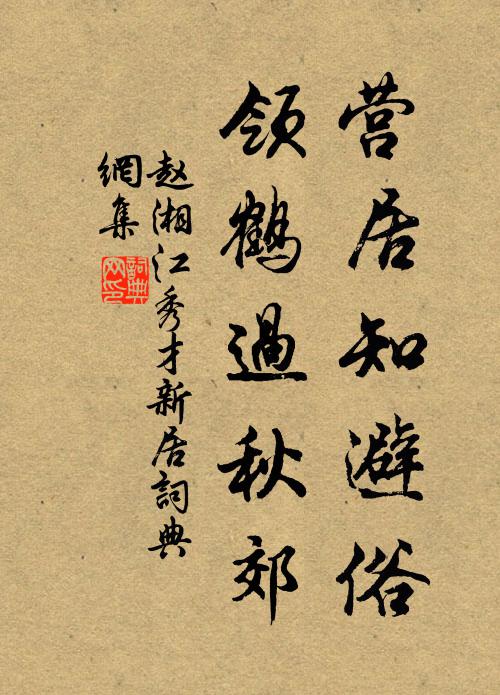 营居知避俗
领鹤過秋郊
赵湘江秀才新居詞典
網集
詞典
网印